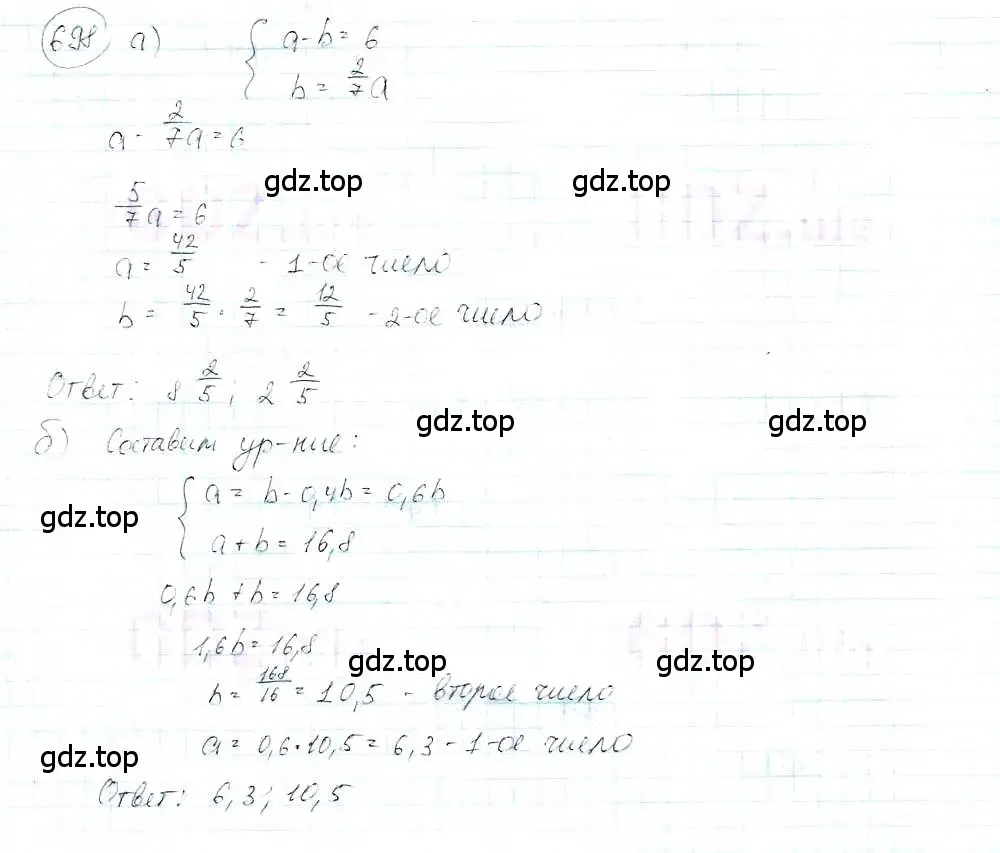 698 а) { a - b = 6
b = 2/7 a
a - 2/7 a = 6
gdz.top gdz.top
5/7 a = 6
a = 42/5 - 1-ое число
b = 42/5 · 2/7 = 12/5 - 2-ое число
Ответ: 8 2/5; 2 2/5
gdz.top gdz.top
б) Составим ур-ние:
{ a = b - 0,4b = 0,6b
gdz.top
a + b = 16,8
0,6b + b = 16,8
1,6b = 16,8
gdz.top gdz.top
b = 168/16 = 10,5 - второе число
a = 0,6 · 10,5 = 6,3 - 1-ое число
gdz.top
Ответ: 6,3; 10,5